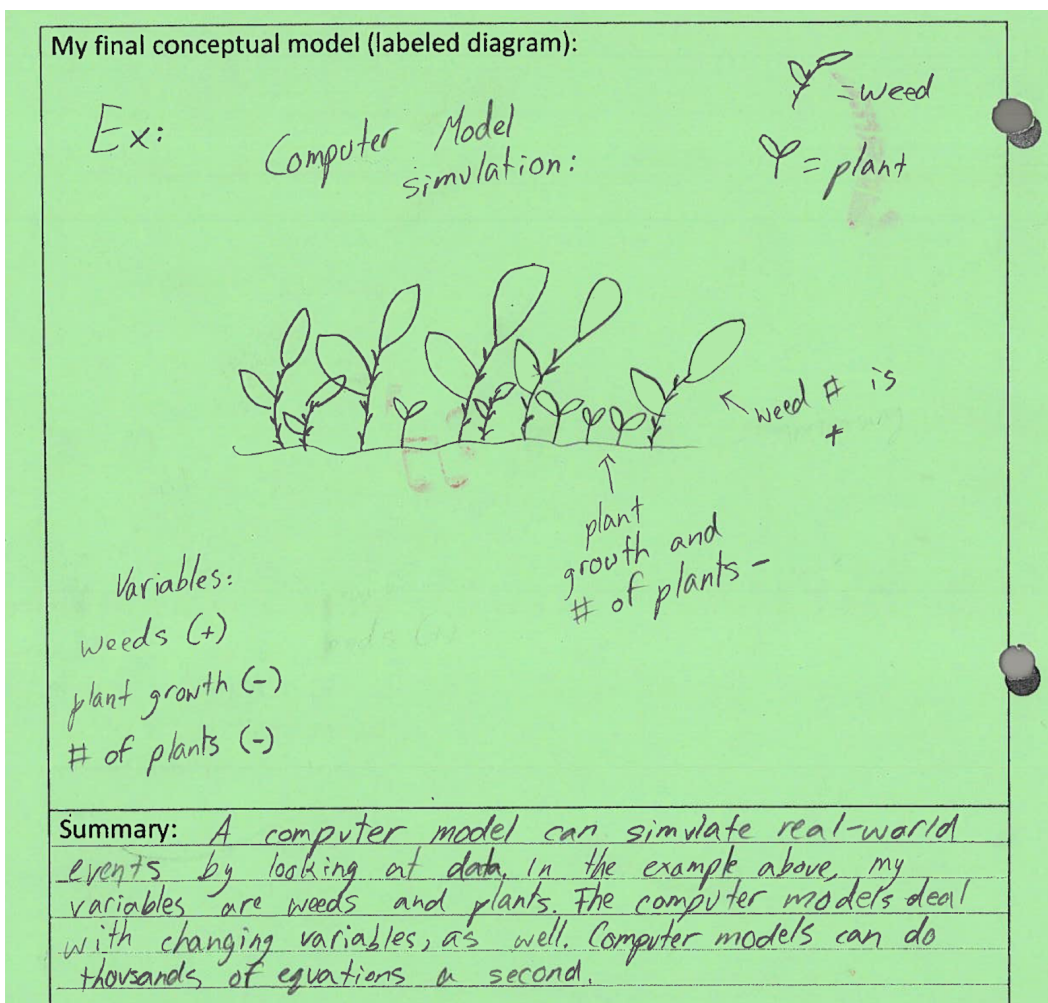 My final conceptual model (labeled diagram):
Ex:
Computer Model
simulation:
= weed
= plant
weed # is
+
plant
growth and
# of plants -
Variables:
weeds (+)
plant growth (-)
# of plants (-)
Summary: A computer model can simulate real-world
events by looking at data. In the example above, my
variables are weeds and plants. The computer models deal
with changing variables, as well. Computer models can do
thousands of equations a second.